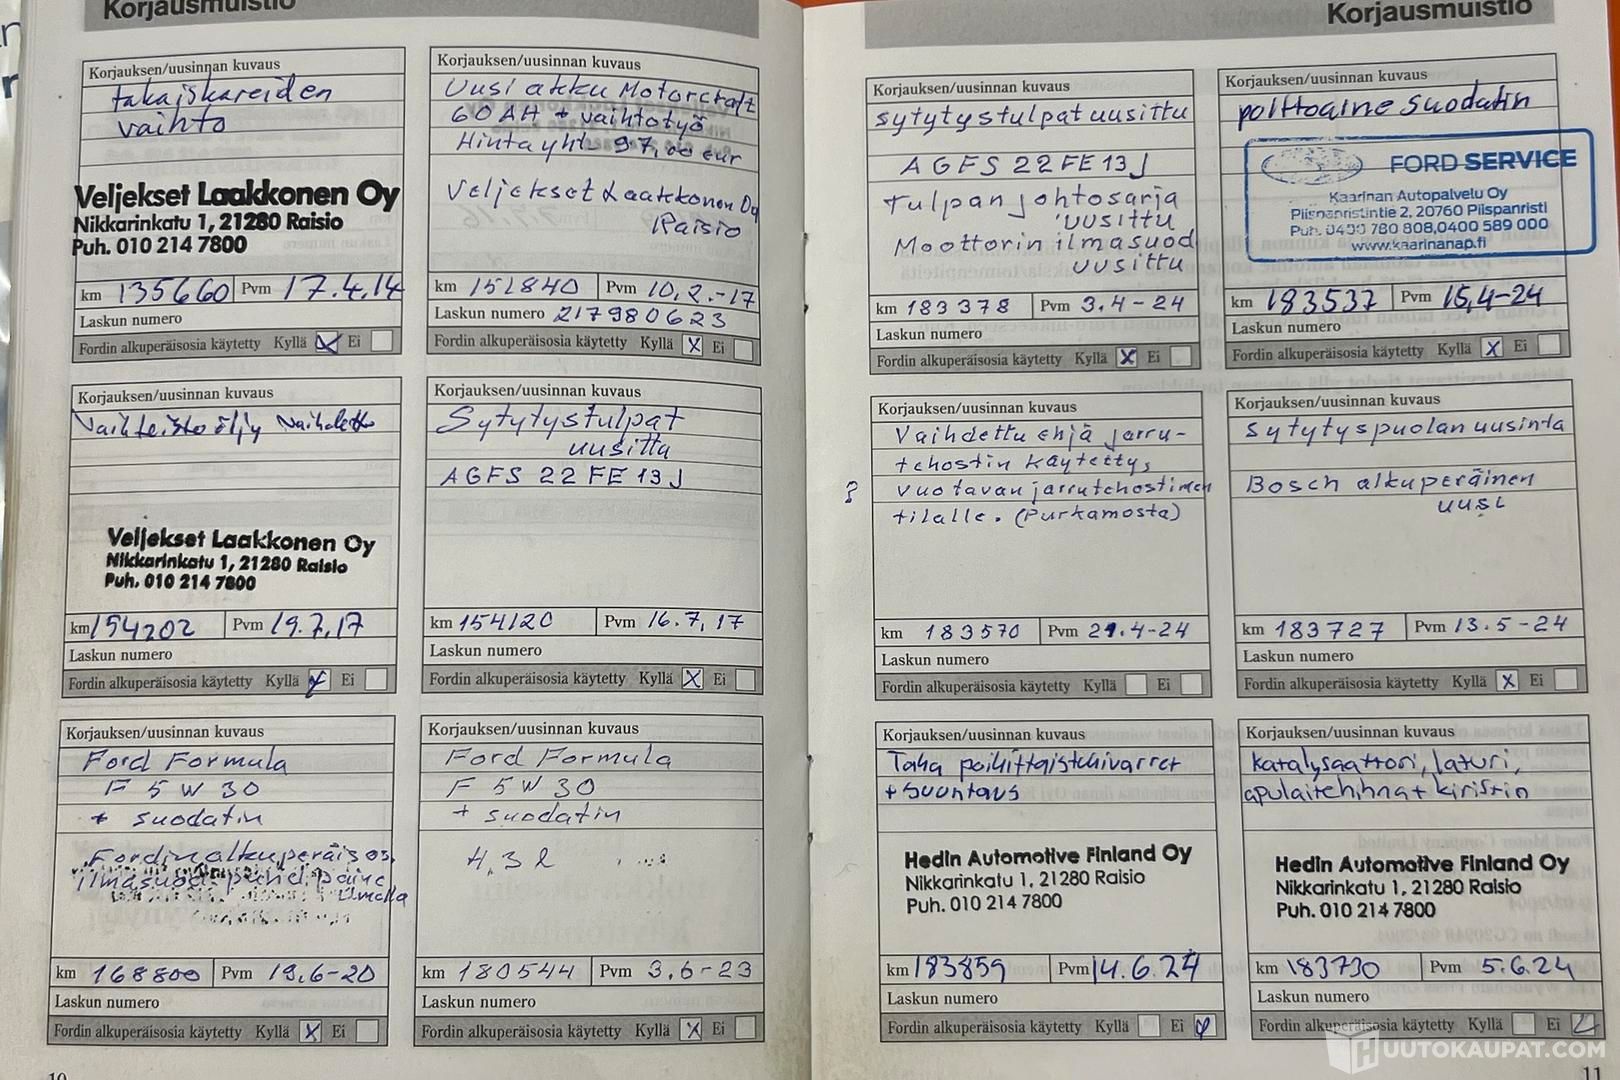 Korjausmuistio
Korjauksen/uusinnan kuvaus
takaiskareiden
vaihto
Veljekset Laakkonen Oy
Nikkarinkatu 1, 21280 Raisio
Puh. 010 214 7800
km 135660 Pvm 17.4.14
Laskun numero
Fordin alkuperäisosia käytetty Kyllä X Ei
Korjauksen/uusinnan kuvaus
Uusi akku Motorcraft
60 AH + vaihtotyö
Hinta yht 97,00 eur
Veljekset Laakkonen Oy
Raisio
km 151840 Pvm 10.2.-17
Laskun numero 217980623
Fordin alkuperäisosia käytetty Kyllä X Ei
Korjauksen/uusinnan kuvaus
Vaihteistoöljy
Veljekset Laakkonen Oy
Nikkarinkatu 1, 21280 Raisio
Puh. 010 214 7800
km 154202 Pvm 19.7.17
Laskun numero
Fordin alkuperäisosia käytetty Kyllä X Ei
Korjauksen/uusinnan kuvaus
Sytytystulpat
uusittu
AGFS 22 FE 13J
km 154120 Pvm 16.7.17
Laskun numero
Fordin alkuperäisosia käytetty Kyllä X Ei
Korjauksen/uusinnan kuvaus
Ford Formula
F 5W30
+ suodatin
Fordin alkuperäisos.
ilmasuod. puhd. paine
ilmalla
km 168800 Pvm 19.6-20
Laskun numero
Fordin alkuperäisosia käytetty Kyllä X Ei
Korjauksen/uusinnan kuvaus
Ford Formula
F 5W30
+ suodatin
4,3 l
km 180544 Pvm 3.6-23
Laskun numero
Fordin alkuperäisosia käytetty Kyllä X Ei
10
Korjausmuistio
Korjauksen/uusinnan kuvaus
sytytystulpat uusittu
AGFS 22 FE 13J
Tulpan johtosarja
uusittu
Moottorin ilmasuod
uusittu
km 183378 Pvm 3.4-24
Laskun numero
Fordin alkuperäisosia käytetty Kyllä X Ei
Korjauksen/uusinnan kuvaus
polttoaine suodatin
FORD SERVICE
Kaarinan Autopalvelu Oy
Piispanristintie 2, 20760 Piispanristi
Puh. 0400 780 808,0400 589 000
www.kaarinanap.fi
km 183537 Pvm 15.4-24
Laskun numero
Fordin alkuperäisosia käytetty Kyllä X Ei
Korjauksen/uusinnan kuvaus
Vaihdettu ehjä jarru-
tehostin käytetty,
? vuotavan jarrutehostimen
tilalle. (Purkamosta)
km 183570 Pvm 29.4-24
Laskun numero
Fordin alkuperäisosia käytetty Kyllä Ei
Korjauksen/uusinnan kuvaus
Sytytyspuolan uusinta
Bosch alkuperäinen
uusi
km 183727 Pvm 13.5-24
Laskun numero
Fordin alkuperäisosia käytetty Kyllä X Ei
Korjauksen/uusinnan kuvaus
Taka poikittaistukivarret
+ suuntaus
Hedin Automotive Finland Oy
Nikkarinkatu 1, 21280 Raisio
Puh. 010 214 7800
km 183859 Pvm 14.6.24
Laskun numero
Fordin alkuperäisosia käytetty Kyllä Ei
Korjauksen/uusinnan kuvaus
katalysaattori, laturi,
apulaitehihna + kiristin
Hedin Automotive Finland Oy
Nikkarinkatu 1, 21280 Raisio
Puh. 010 214 7800
km 183730 Pvm 5.6.24
Laskun numero
Fordin alkuperäisosia käytetty Kyllä Ei
HUUTOKAUPAT.COM
11